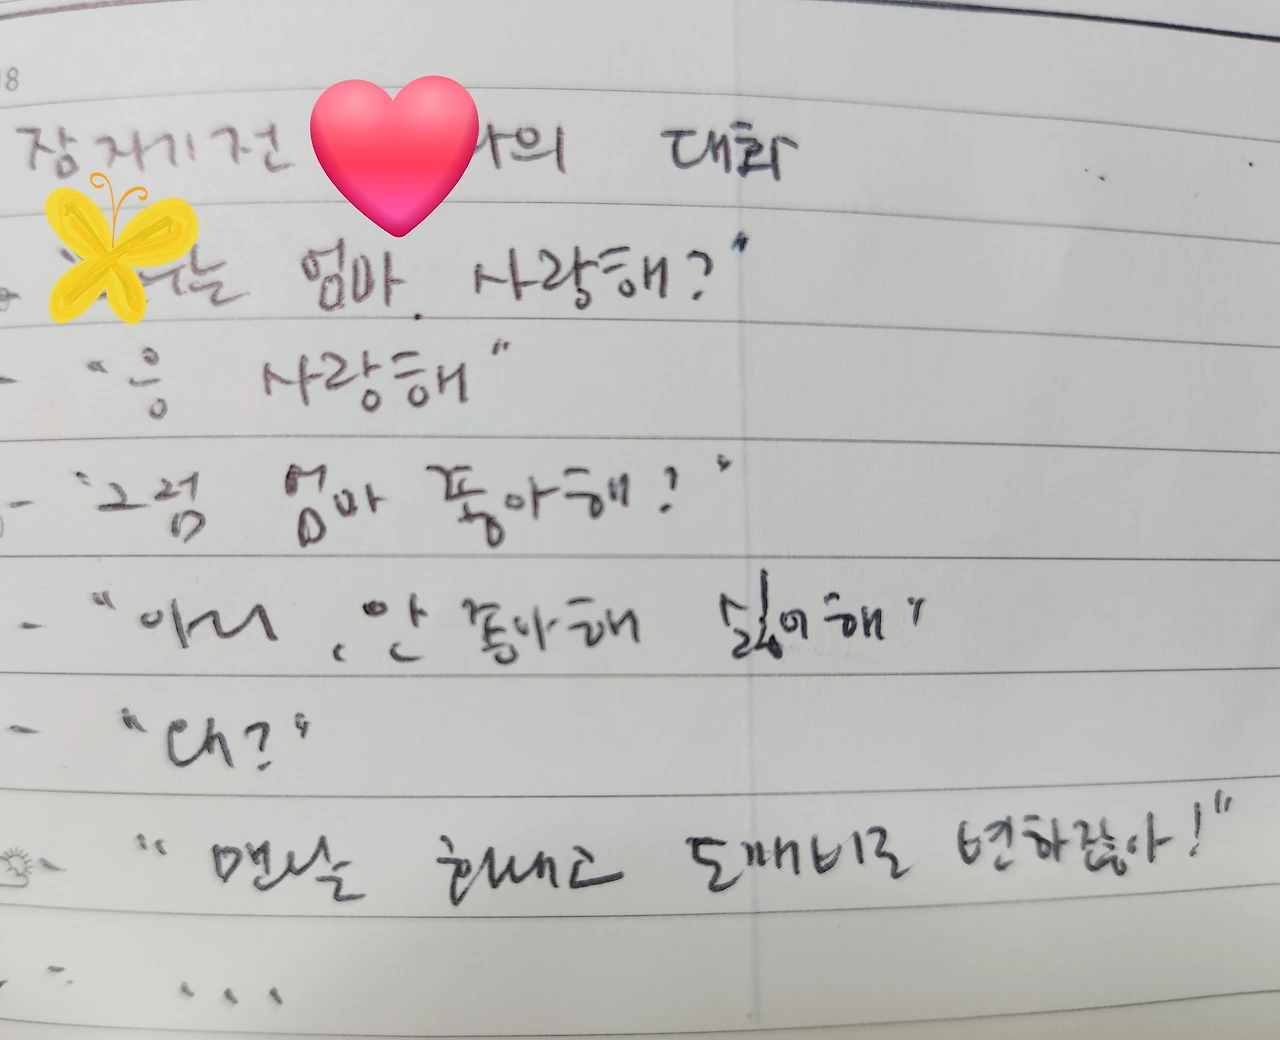 18
잠 자기 전 의 대화
는 엄마 사랑해?"
- "응 사랑해"
- "그럼 엄마 좋아해?"
- "아니, 안 좋아해 싫어해"
- "왜?"
- "맨날 화내고 도깨비로 변하잖아!"
- ...